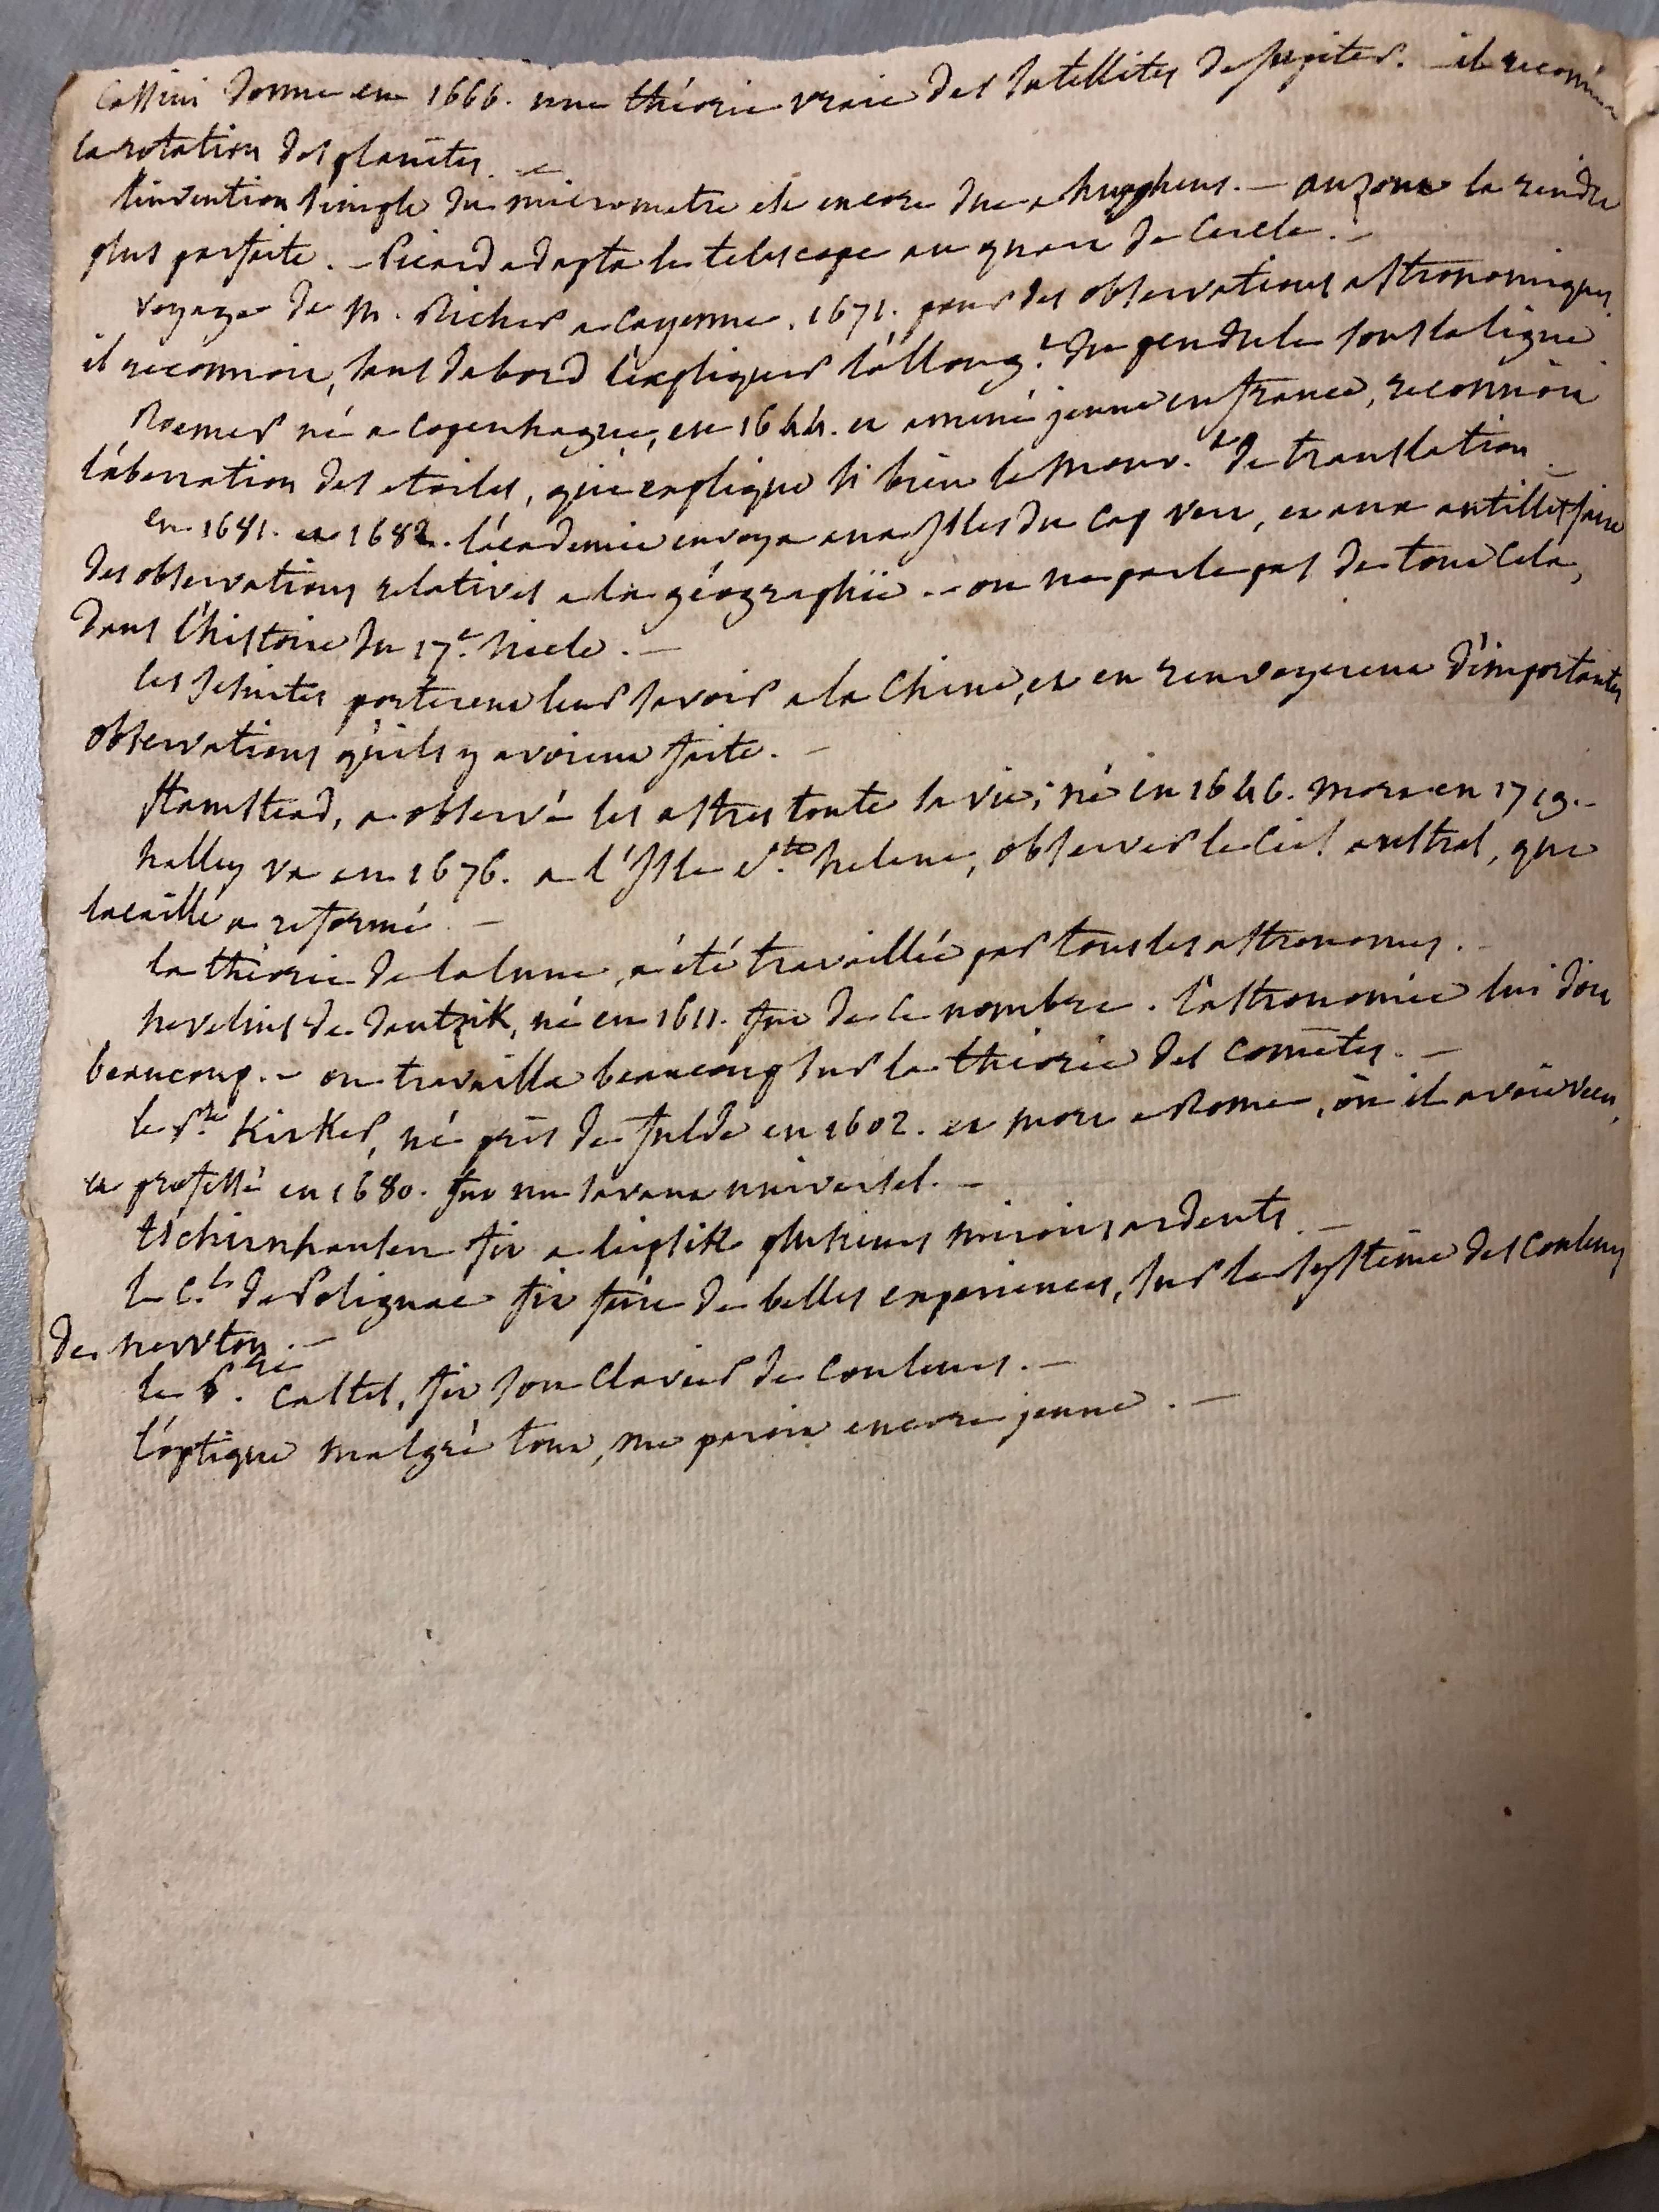 Cassini donne en 1666. une théorie vraie des satellites de Jupiter. – il reconnut
la rotation des planètes. –
l'invention simple du micrometre est encore due a huyghens. – auzout la rendit
plus parfaite. – Picard adapta le telescope au quart de Cercle. –
voyage de M. Richer a Cayenne. 1671. pour des observations astronomiques.
il reconnoit, sans dabord l'expliquer l'allong.t du pendule sous la ligne
Roemer né a Copenhague, en 1644. et amené jeune en france, reconnoit
l'aberration des etoiles, qui explique si bien le mouv.t de translation –
en 1681. et 1682. l'académie envoya aux Isles du Cap vert, et aux antilles faire
des observations relatives a la géographie. – on ne parle pas de tout Cela,
dans l'histoire du 17.e siecle. –
les Jesuites porterent leur savoir a la Chine, et en renvoyerent d'importantes
observations qu'ils y avoient faite. –
flamstead, a observé les astres toute sa vie; né en 1646. mort en 1719. –
halley va en 1676. a l'Isle S.te helene, observer le Ciel austral, que
lacaille a reformé –
la théorie de la lune, a été travaillée par tous les astronomes. –
hevelius de dantzik, né en 1611. fut de ce nombre. l'astronomie lui doit
beaucoup. – on travailla beaucoup sur la théorie des cometes. –
le P.re Kirker, né près de fulde en 1602. et mort a Rome, où il avoit vecu,
et professé en 1680. fut un savant universel. –
tschirnhausen fit a leipsik plusieurs miroirs ardents. –
le C.l de Polignac fit faire de belles experiences, sur le système des couleurs
de newton. –
le P.re Castel, fit son Clavier de couleurs. –
l'optique malgré tout, me paroit encore jeune. –